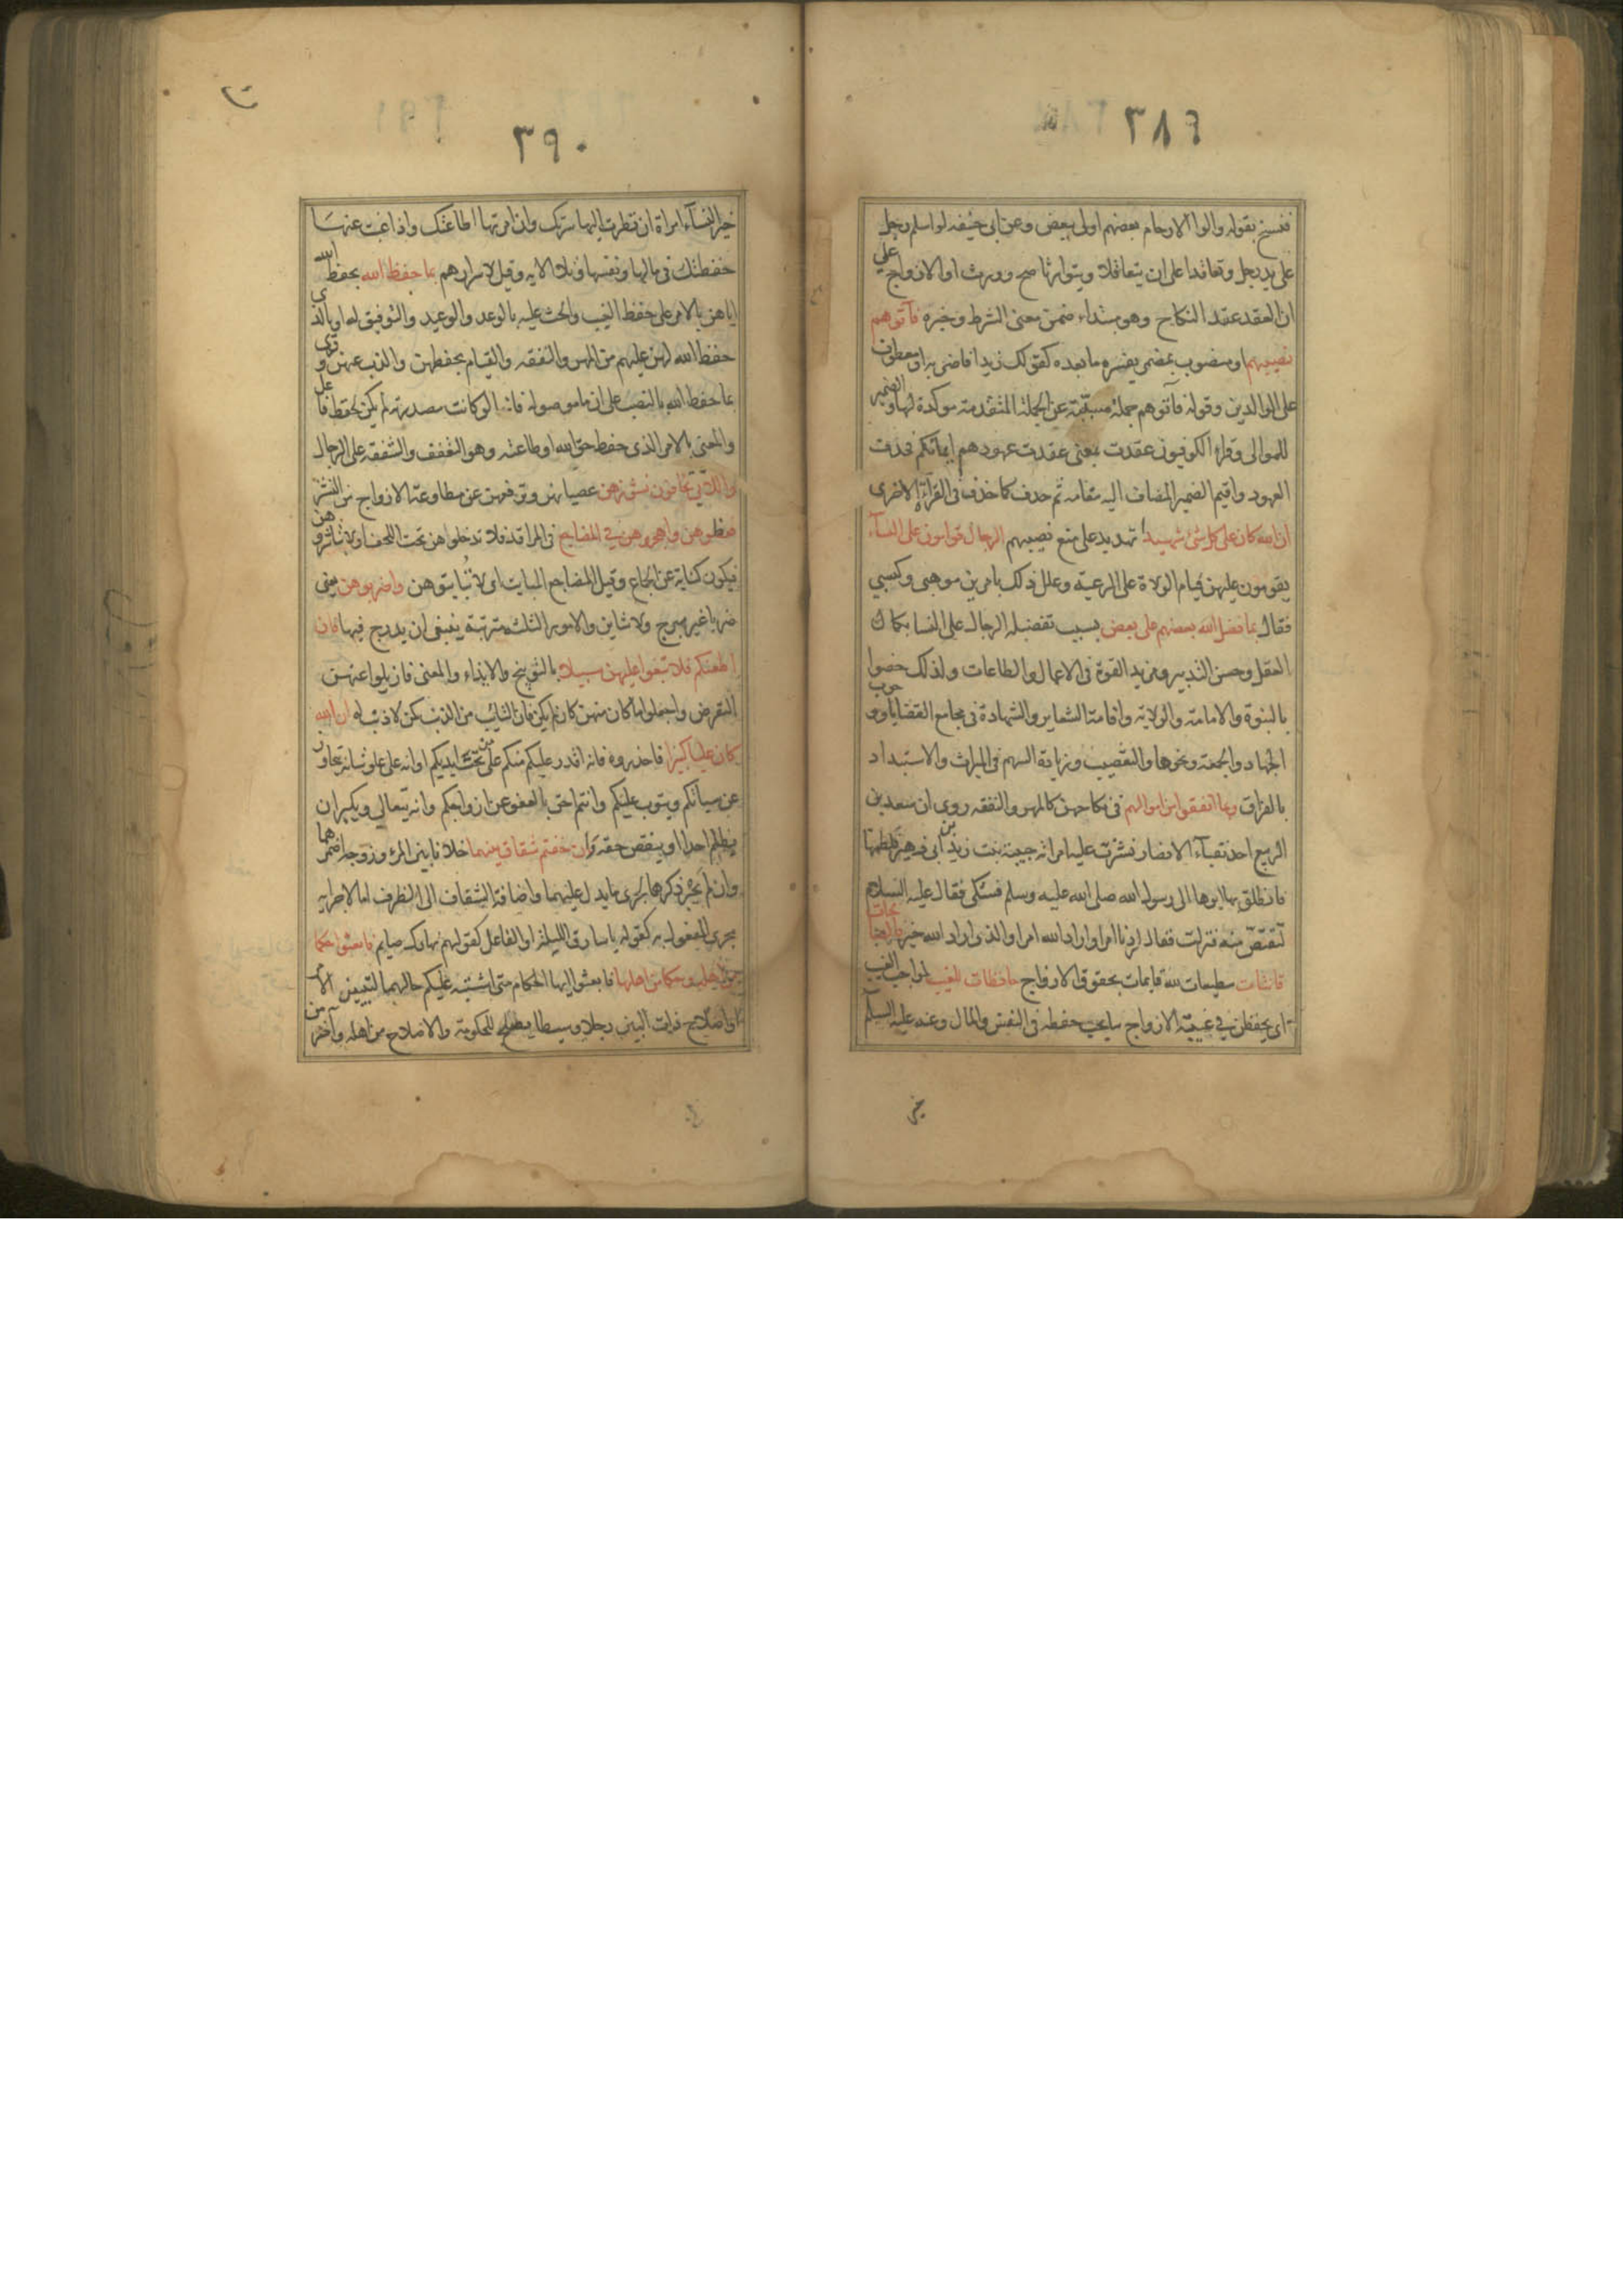 ٣٨٩
فنسخ بقوله والوا الارحام بعضهم اولى ببعض وعن ابى حنيفه لو اسلم رجل
على يد رجل وتعاقدا على ان يتعاقلا ويتوارثا صح وورث او الازواج على
ان العقد عقد النكاح وهو مبتداء ضمن معنى الشرط وخبره فآتوهم
نصيبهم او منصوب بمضمر يفسره ما بعده كقولك زيدا فاضربه او معطوف
على الوالدين وقوله فآتوهم جملة مسببة عن الجملة المتقدمة موكدة لها والضمير
للموالى وقراء الكوفيون عقدت بمعنى عقدت عهودهم ايمانكم فحذف
العهود واقيم الضمير المضاف اليه مقامه ثم حذف كما حذف فى القرآة الاخرى
ان الله كان على كل شئ شهيدا تهديد على منع نصيبهم الرجال قوامون على النسآء
يقومون عليهن قيام الولاة على الرعيته وعلل ذلك بامرين موهبى وكسبي
فقال بما فضل الله بعضهم على بعض بسبب تفضيله الرجال على النسا بكمال
العقل وحسن التدبير ومزيد القوة فى الاعمال والطاعات ولذلك خصوا
بالنبوة والامامته والولايته واقامة الشعاير والشهادة فى مجامع القضايا ووجوب
الجهاد والجمعة ونحوها والتعصيب وزيادة السهم فى الميراث والاستبداد
بالفراق وبما انفقوا من اموالهم فى نكاحهن كالمهر والنفقه روى ان سعد بن
الربيع احد نقبآء الانصار نشزت عليه امراته حبيبة بنت زيد بن ابى زهير فلطمها
فانطلق بها ابوها الى رسول الله صلى الله عليه وسلم فشكى فقال عليه السلام
لتقتص منه فنزلت فقال اردنا امرا واراد الله امرا والذى اراد الله خير فالصالحات
قانتات مطيعات لله قايمات بحقوق الازواج حافظات للغيب لمواجب الغيب
اى يحفظن فى غيبة الازواج ما يجب حفظه فى النفس والمال وعنه عليه السلم
خير
٣٩٠
خير النسآء امراة ان نظرت اليها سرتك وان امرتها اطاعتك واذا غبت عنها
حفظتك فى مالها ونفسها وتلا الايه وقيل لاسرارهم بما حفظ الله بحفظ الله
اياهن بالامر على حفظ الغيب والحث عليه بالوعد والوعيد والتوفيق له او بالذى
حفظ الله لهن عليهم من المهر والنفقه والقيام بحفظهن والذب عنهن وقرى
بما حفظ الله بالنصب على ان ما موصوله فانها لو كانت مصدريته لم يكن لحفظ فاعل
والمعنى بالامر الذى حفظ حق الله او طاعته وهو التعفف والشفقه على الرجال
واللاتي تخافون نشوزهن عصيانهن وترفعهن عن مطاوعة الازواج من النشز
فعظوهن واهجروهن في المضاجع فى المراقد فلا تدخلوهن تحت اللحف اولا تباشروهن
فيكون كناية عن الجماع وقيل المضاجع المبايت اى لا تبايتوهن واضربوهن يعنى
ضربا غير مبرح ولا شاين والامور الثلثه مترتبة ينبغى ان يدرج فيها فان
اطعنكم فلا تبغوا عليهن سبيلا بالتوبيخ والايذاء والمعنى فازيلوا عنهن
التعرض واجعلوا ما كان منهن كان لم يكن فان التايب من الذنب كمن لا ذنب له ان الله
كان عليا كبيرا فاحذروه فانه اقدر عليكم منكم على من تحت ايديكم او انه على علو شانه يتجاوز
عن سياتكم ويتوب عليكم وانتم احق بالعفو عن ازواجكم وانه يتعالي ويكبر ان
يظلم احدا او ينقص حقه وان خفتم شقاق بينهما خلافا بين المرء وزوجه اضمرهما
وان لم يجر ذكرهما لجرى ما يدل عليهما واضافة الشقاق الى الظرف اما لاجرايه
مجرى المفعول به كقوله يا سارق الليلة او الفاعل كقولهم نهارك صايم فابعثوا حكما
من اهله وحكما من اهلها فابعثوا ايها الحكام متى اشتبه عليكم حالهما لتبيين الامر
او اصلاح ذات البين رجلا وسيطا يصلح للحكومة والاصلاح من اهله وآخر من